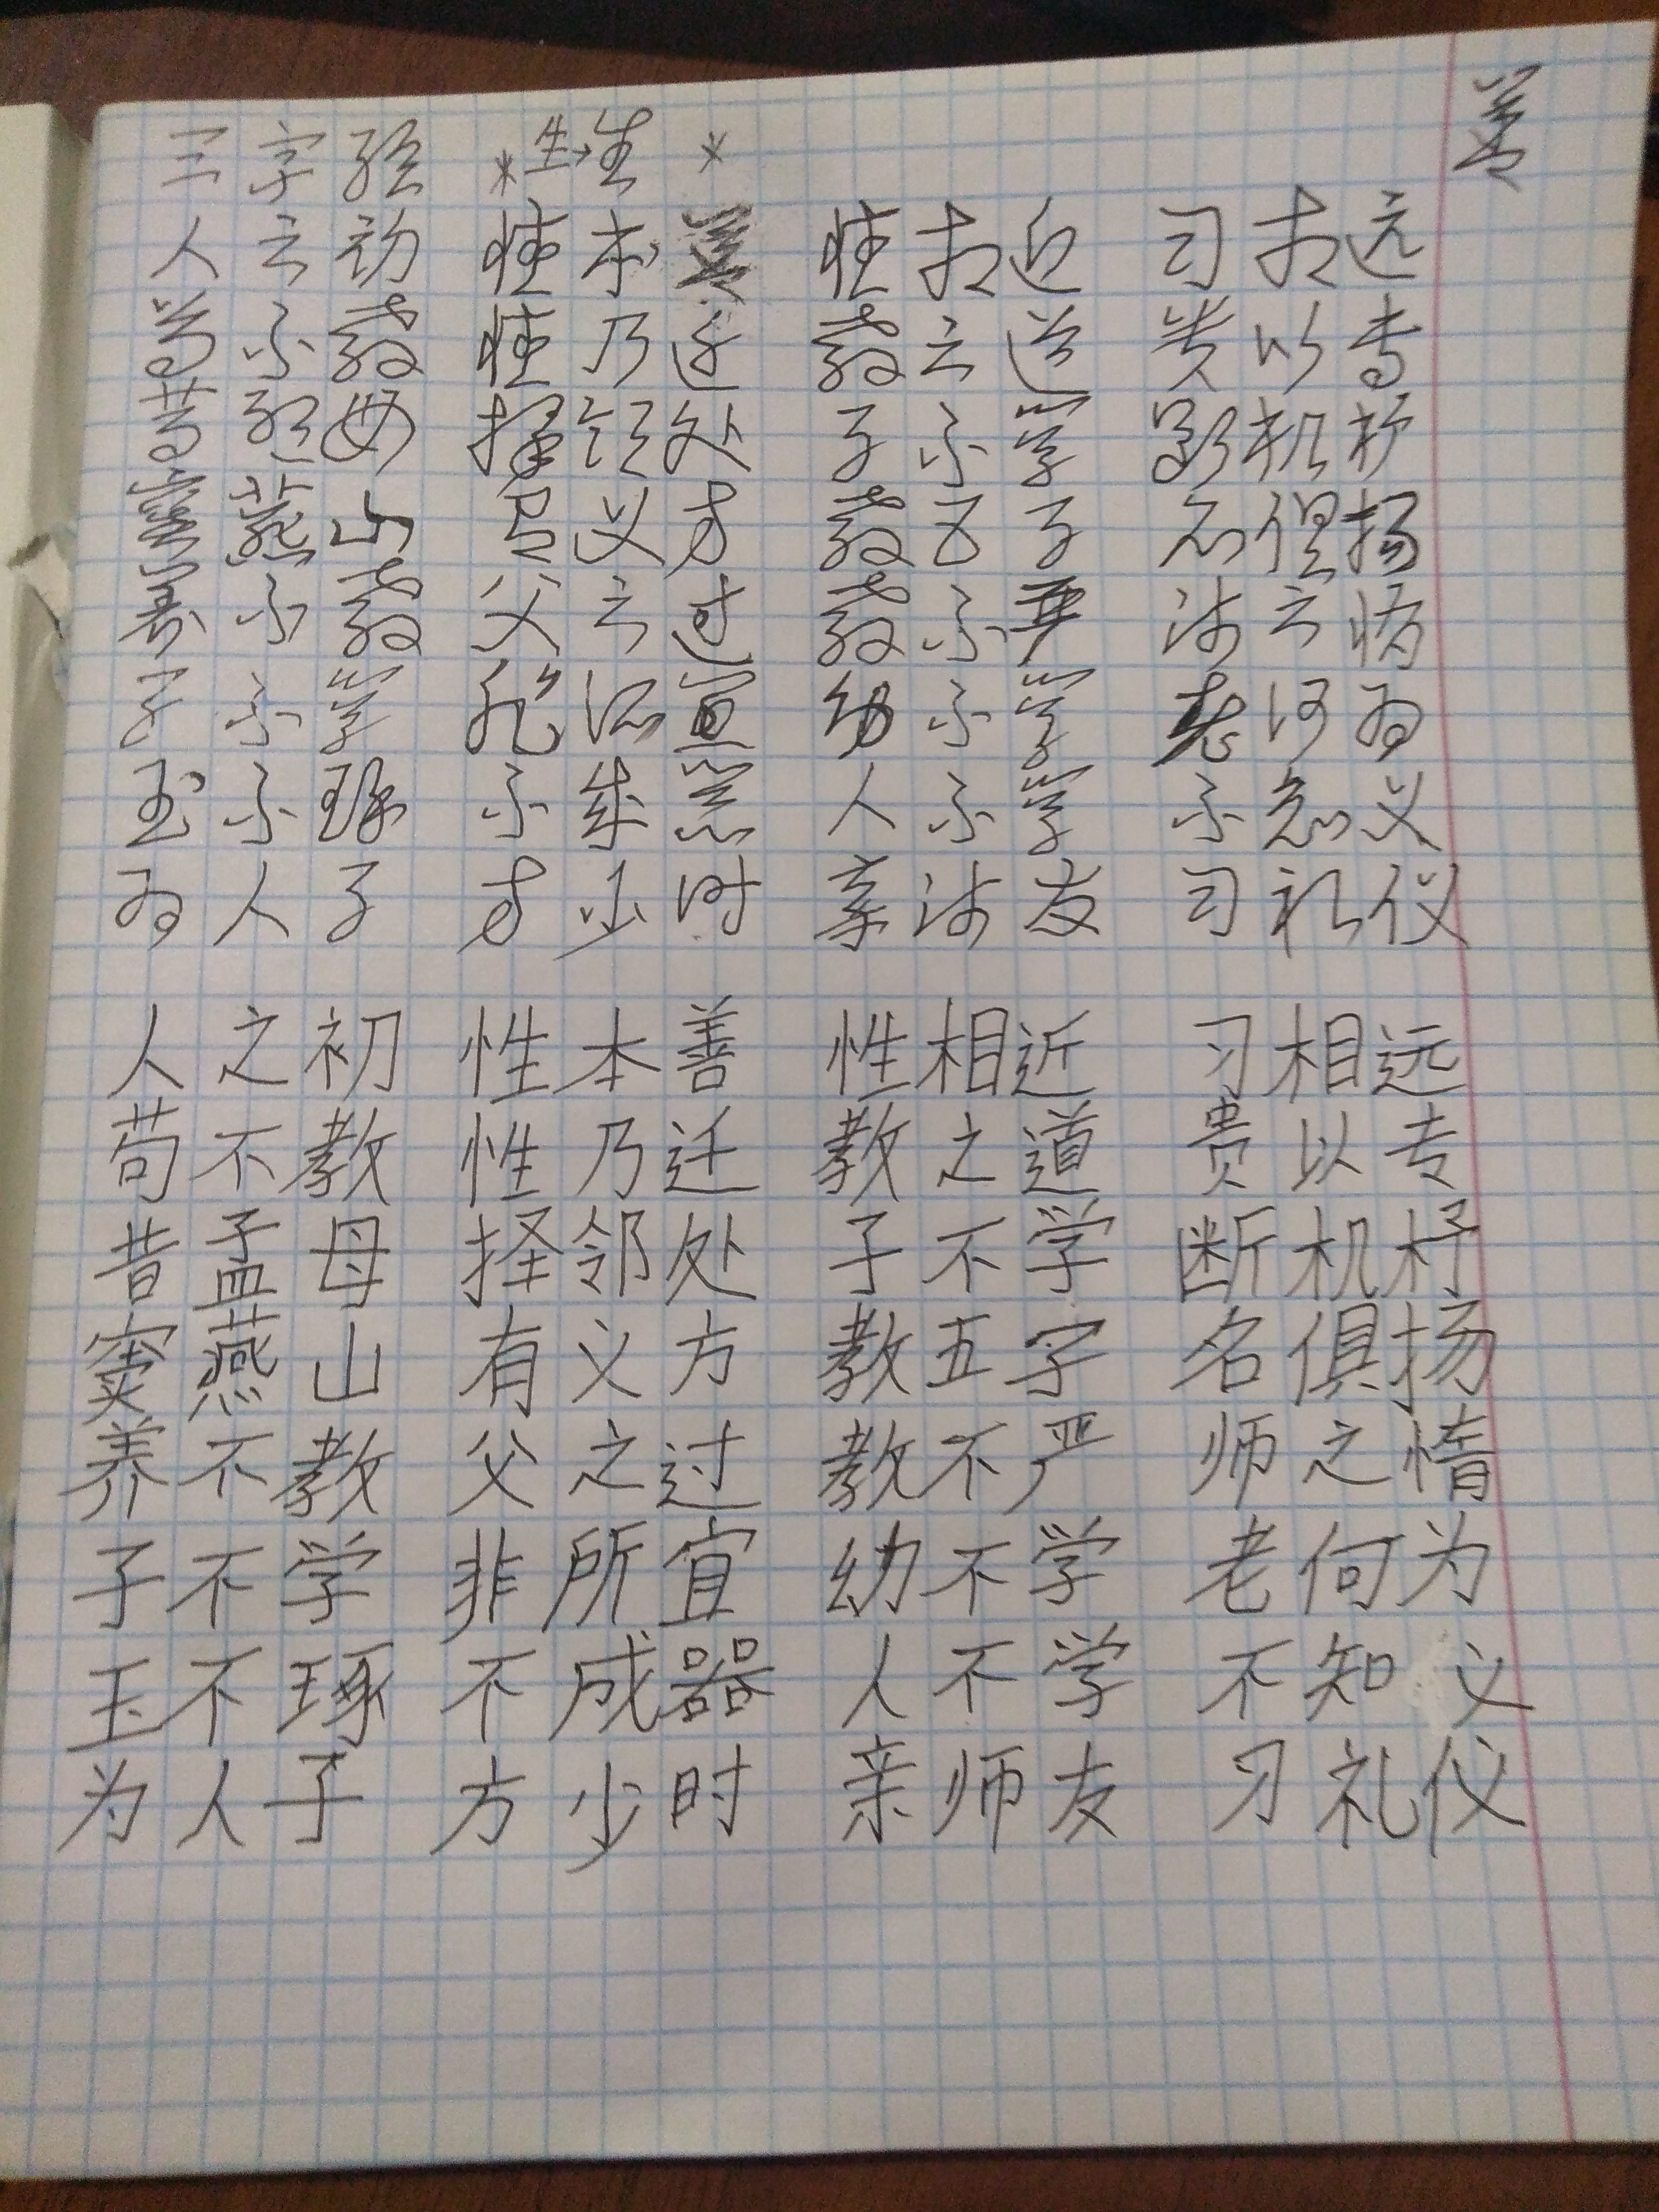 三字经 *生→生 * 善
人之初 性本善 性相近 习相远
苟不教 性乃迁 教之道 贵以专
昔孟母 择邻处 子不学 断机杼
窦燕山 有义方 教五子 名俱扬
养不教 父之过 教不严 师之惰
子不学 非所宜 幼不学 老何为
玉不琢 不成器 人不学 不知义
为人子 方少时 亲师友 习礼仪
人之初 性本善 性相近 习相远
苟不教 性乃迁 教之道 贵以专
昔孟母 择邻处 子不学 断机杼
窦燕山 有义方 教五字 名俱扬
养不教 父之过 教不严 师之惰
子不学 非所宜 幼不学 老何为
玉不琢 不成器 人不学 不知义
为人子 方少时 亲师友 习礼仪